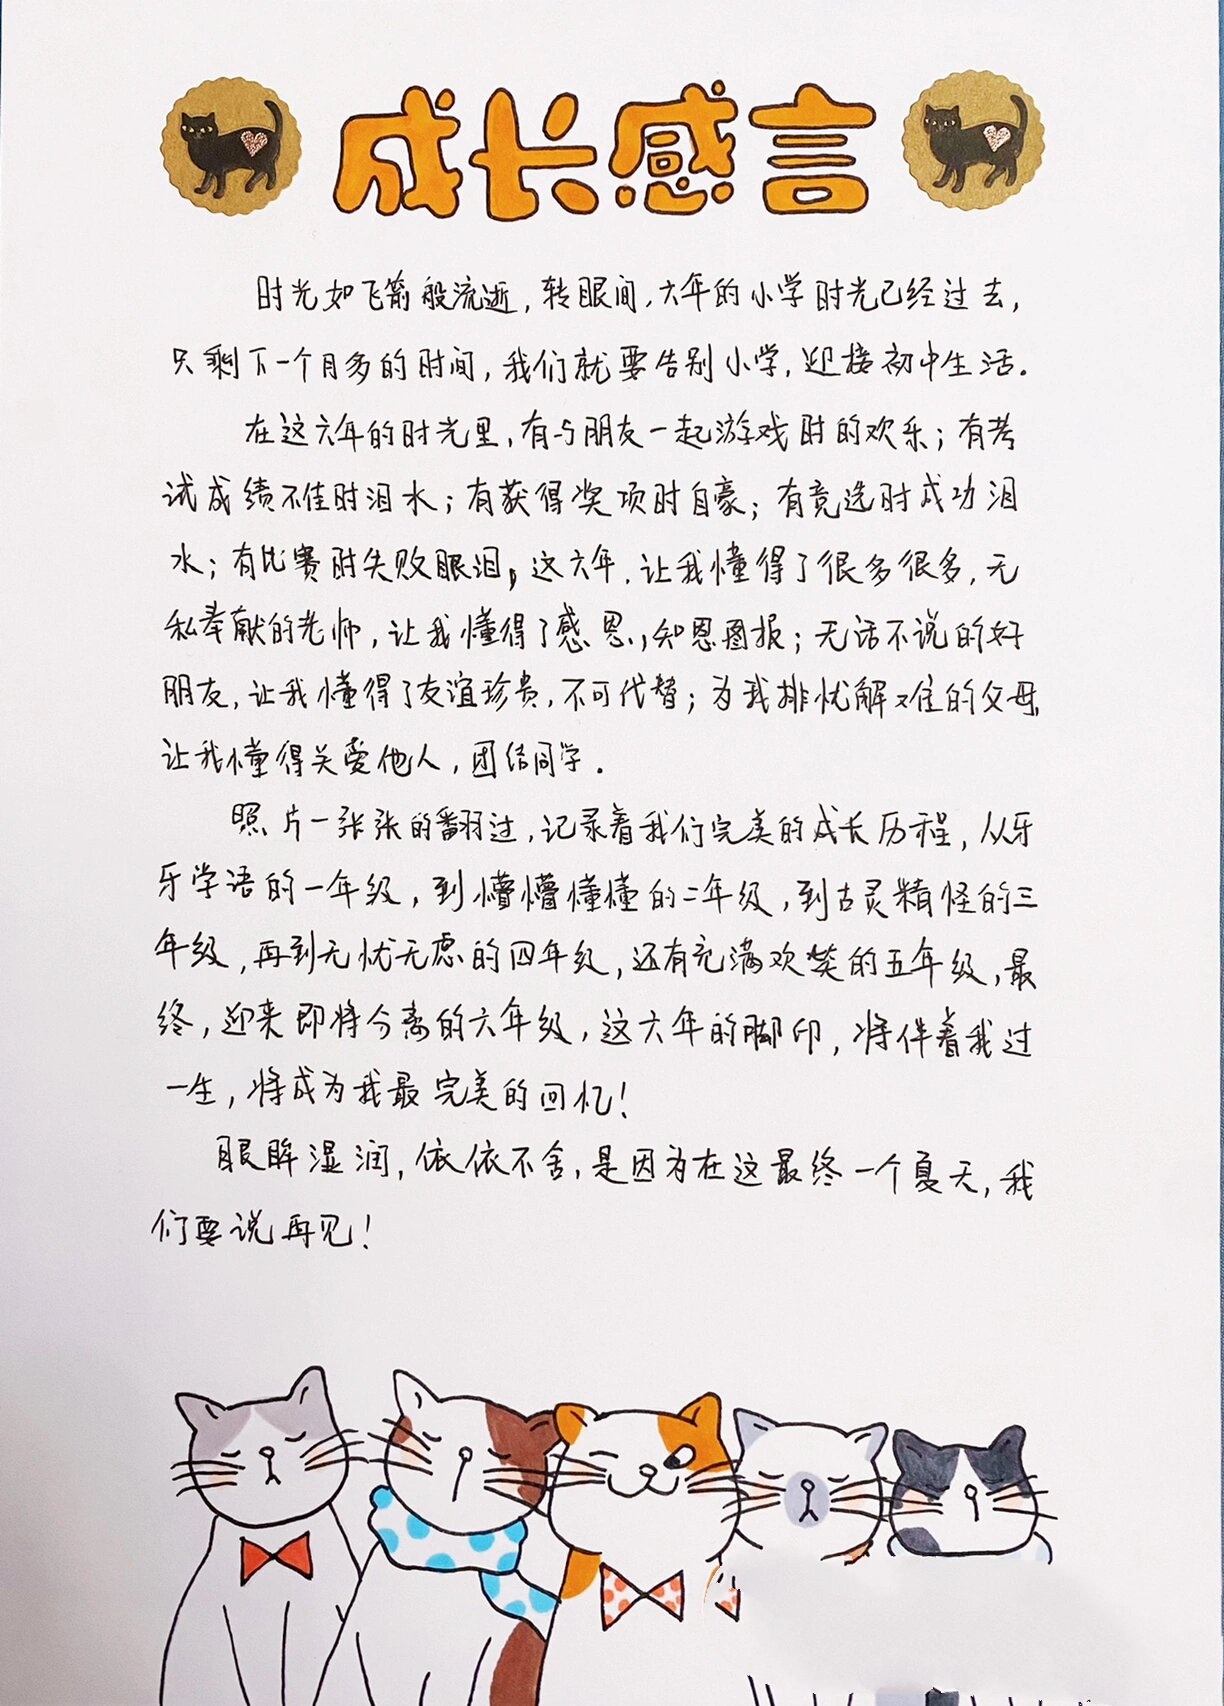 成长感言
时光如飞箭般流逝，转眼间，六年的小学时光已经过去，
只剩下一个月多的时间，我们就要告别小学，迎接初中生活。
在这六年的时光里，有与朋友一起游戏时的欢乐；有考
试成绩不佳时泪水；有获得奖项时自豪；有竞选时成功泪
水；有比赛时失败眼泪，这六年，让我懂得了很多很多，无
私奉献的老师，让我懂得了感恩，知恩图报；无话不说的好
朋友，让我懂得了友谊珍贵，不可代替；为我排忧解难的父母，
让我懂得关爱他人，团结同学。
照片一张张的翻过，记录着我们完美的成长历程，从牙
牙学语的一年级，到懵懵懂懂的二年级，到古灵精怪的三
年级，再到无忧无虑的四年级，还有充满欢笑的五年级，最
终，迎来即将分离的六年级，这六年的脚印，将伴着我过
一生，将成为我最完美的回忆！
眼眸湿润，依依不舍，是因为在这最终一个夏天，我
们要说再见！